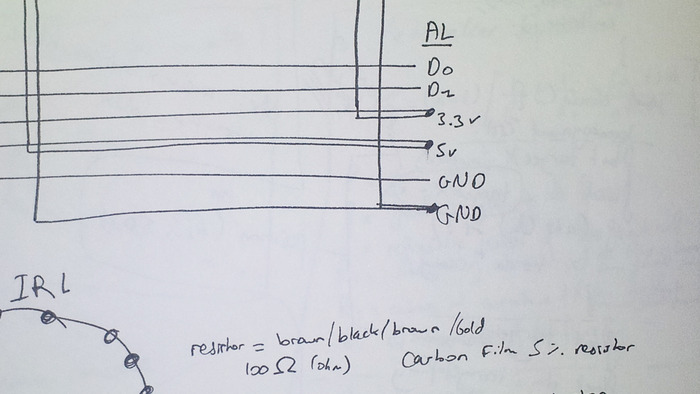 AL
D0
D1
3.3v
5v
GND
GND
IRL
resistor = brown/black/brown/Gold
100 Ω (ohm) Carbon Film 5 % resistor